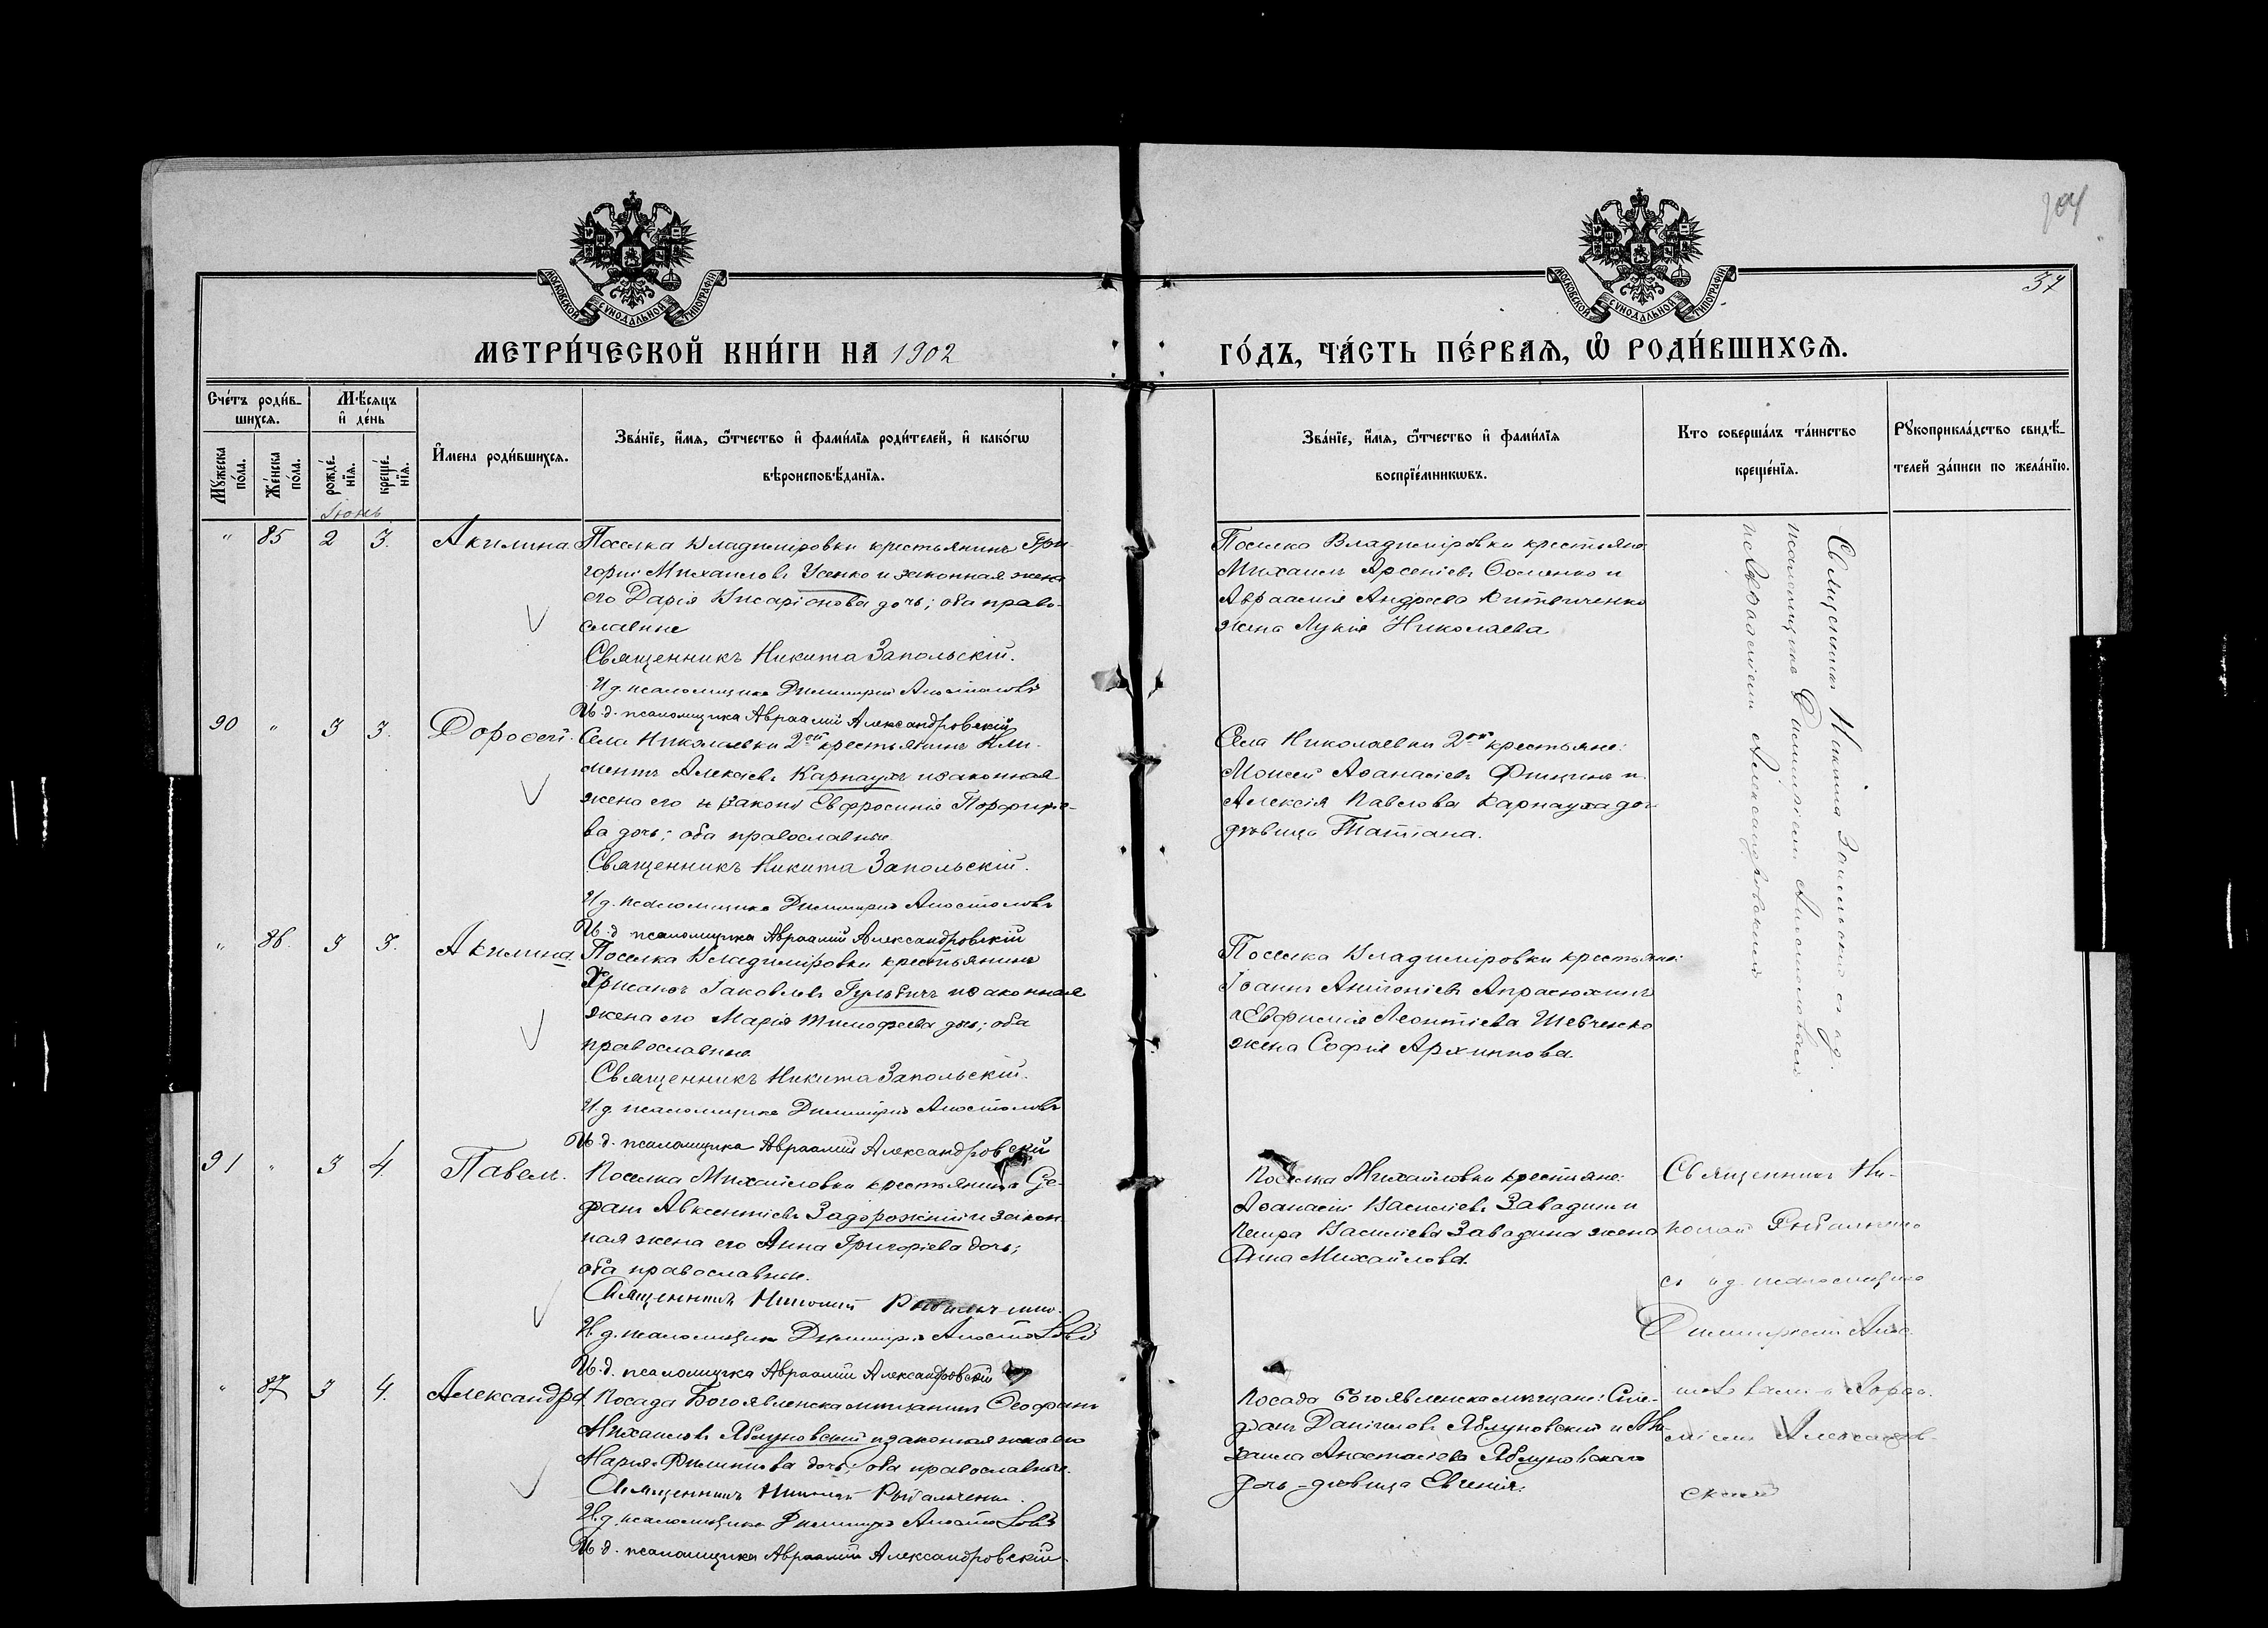 104
37
МОСКОВСКОЙ СѴНОДАЛЬНОЙ ТИПОГРАФІИ
МОСКОВСКОЙ СѴНОДАЛЬНОЙ ТИПОГРАФІИ
МЕТРИ́ЧЕСКОЙ КНИ́ГИ НА 1902
ГО́ДЪ, ЧА́СТЬ ПЕ́РВАѦ, Ѽ РОДИ́ВШИХСѦ.
Сче́тъ роди́в-
шихсѧ.
Мѣ́сѧцъ
и҆ де́нь
Мꙋ́жеска по́ла.
Же́нска по́ла.
рожде́-нїѧ.
креще́-нїѧ.
И҆мена роди́вшихсѧ.
Зва́нїе, и҆́мѧ, ѻ҆́тчество и҆ фами́лїѧ роди́телей, и҆ како́гѡ
вѣроисповѣ́данїѧ.
Зва́нїе, и҆́мѧ, ѻ҆́тчество и҆ фами́лїѧ
воспрїе́мникѡвъ.
Кто соверша́лъ та́инство
креще́нїѧ.
Рꙋкоприкла́дство свидѣ́-
телей за́писи по жела́нїю.
Іюнь
" 85 2 3. Акилина. Поселка Владиміровки крестьянинъ Гри-
горій Михаиловъ Усенко и законная жена
его Дарія Висаріонова дочь; оба право-
славные
Священникъ Никита Запольскій.
И д. псаломщика Димитрій Апостоловъ
И. д. псаломщика Авраамій Александровскій
Поселка Владиміровки крестьяне
Михаилъ Арсеніевъ и
Авраамія Андреева Витвиченко
жена Лукія Николаева
Священникъ Никита Запольскій съ и д.
псаломщика Димитріемъ Апостоловымъ
и Авраамісмъ Александровскимъ
90 " 3 3. Дорофей. Села Николаевки 2ой крестьянинъ Кли-
ментъ Алексіевъ Карнаухъ и законная
жена его Евфросинія Порфирие-
ва дочь; оба православные.
Священникъ Никита Запольскій.
И д. псаломщика Димитрій Апостоловъ
И. д псаломщика Авраамій Александровскій
Села Николаевки 2ой крестьяне:
Моисей Аѳанасіевъ и
Алексія Павлова Карнауха дочь
дѣвица Татіана.
" 86. 3 3. Акилина. Поселка Владиміровки крестьянинъ
Хрисанѳъ Іаковлевъ Гульвичъ и законная
жена его Марія Тимоѳеева дочь; оба
православные
Священникъ Никита Запольскій.
И. д. псаломщика Димитрій Апостоловъ
И. д. псаломщика Авраамій Александровскій
Поселка Владиміровки крестьяне:
Іоаннъ Антоніевъ Апрасюхинъ
и Евфимія Леонтіева Шевченко
жена Софія Архиппова.
91 " 3 4. Павелъ. Поселка Михайловки крестьянинъ Сте-
фанъ Авксентіевъ Задорожній и закон-
ная жена его Анна Григоріева дочь;
оба православные.
Священникъ Николай Рыбальченко.
И. д. псаломщика Димитрій Апостоловъ
И. д. псаломщика Авраамій Александровскій
Поселка Михайловки крестьяне:
Аѳанасій Василіевъ Завадинъ и
Петра Василіева Завадина жена
Анна Михайлова.
Священникъ Ни-
колай Рыбальченко
съ и д. псаломщика
Димитріемъ Апос-
толовымъ и Авраа-
міемъ Александров-
скимъ
" 87 3 4. Александра. Посада Богоявленска мѣщанинъ Ѳеофанъ
Михаиловъ Яблуновскій и законная жена его
Марія Филиппова дочь; оба православные.
Священникъ Николай Рыбальченко.
И. д. псаломщика Димитрій Апостоловъ
И. д. псаломщика Авраамій Александровскій.
Посада Богоявленска мѣщане: Сте-
фанъ Даніиловъ Яблуновскій и Ми-
хаила Анастасіева Яблуновскаго
дочь-дѣвица Евгенія.